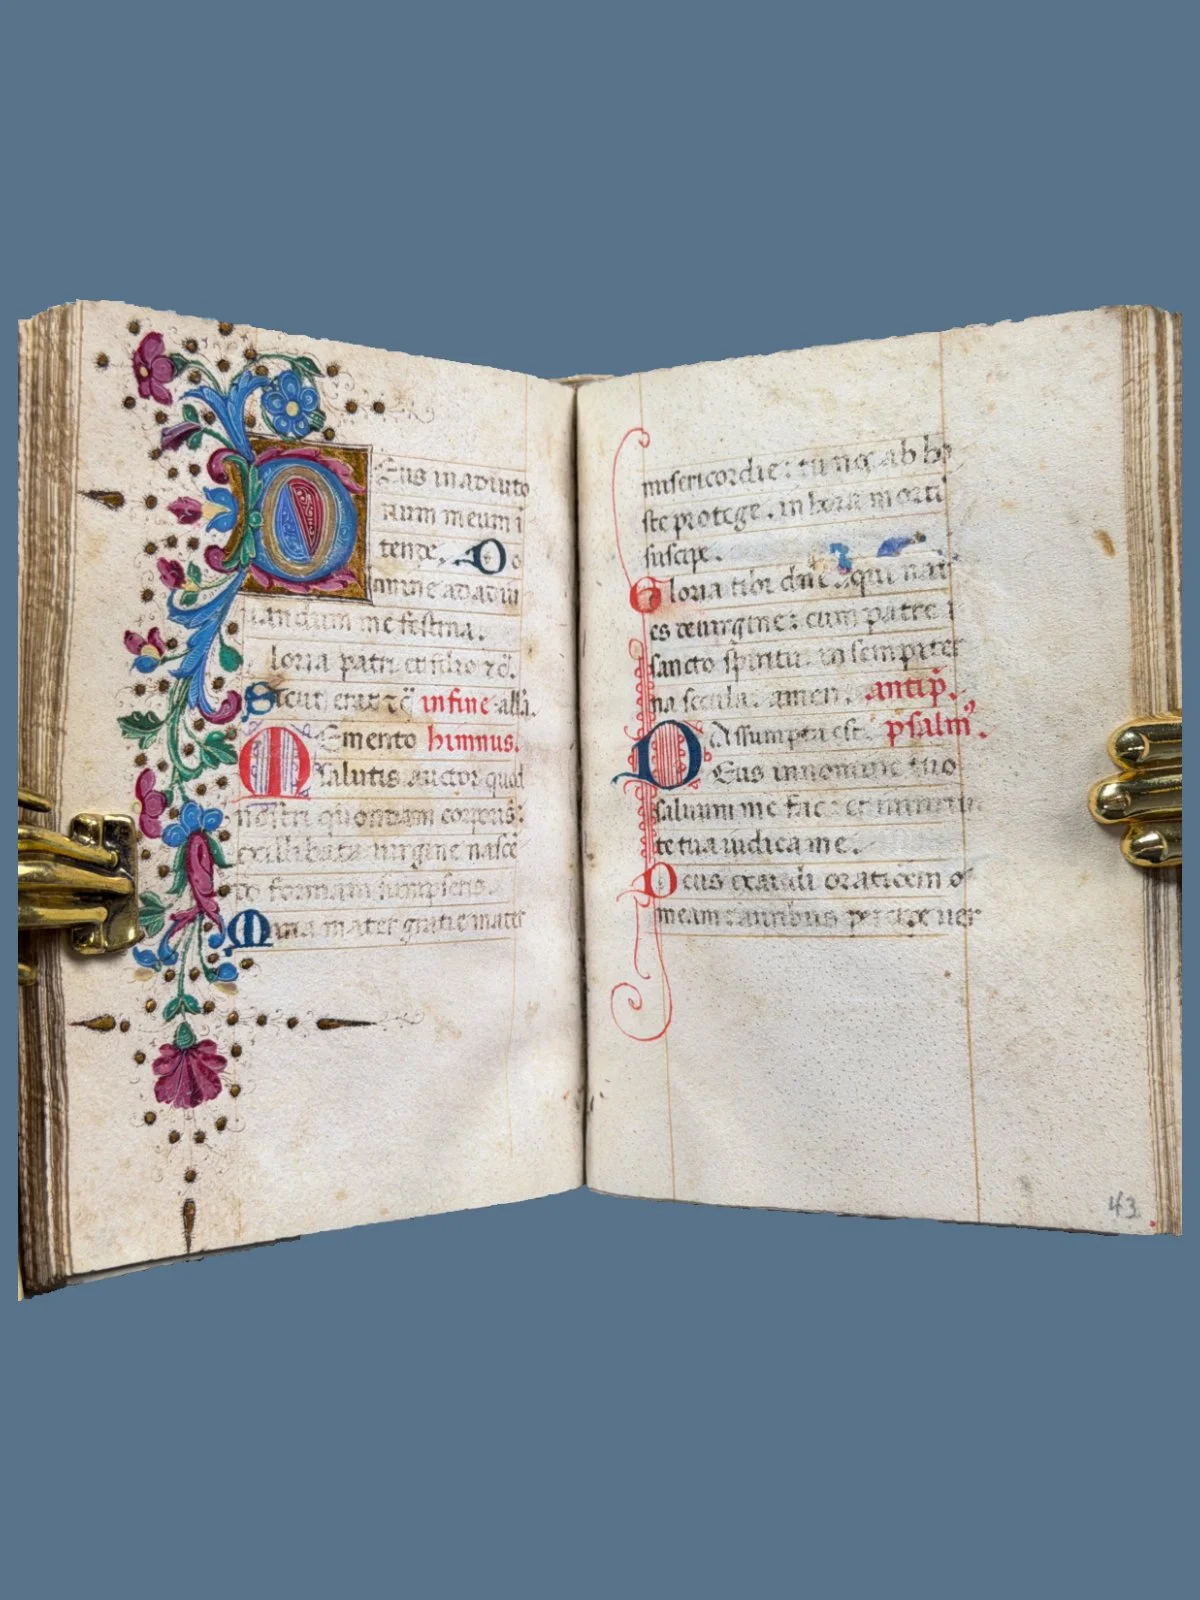 Deus in adiuto
rium meum i
tende. Do
mine ad adiu
uandum me festina.
loria patri et filio ⁊c̄.
Sicut erat ⁊c̄ in fine all'a.
Memento himnus.
salutis auctor quod
nostri quondam corporis:
ex illibata uirgine nascē
do formam sumpseris.
Maria mater gratie mater
misericordie: tu nos ab ho
ste protege. in hora morti
suscipe.
Gloria tibi dn̄e. qui nat
es de uirgine: cum patre
sancto spiritu. in sempiter
na secula. amen. antip̄.
Assumpta est. psalm'.
Deus in nomine tuo
saluum me fac: et in uirtu
te tua iudica me.
Deus exaudi orationem
meam: auribus percipe uer
43